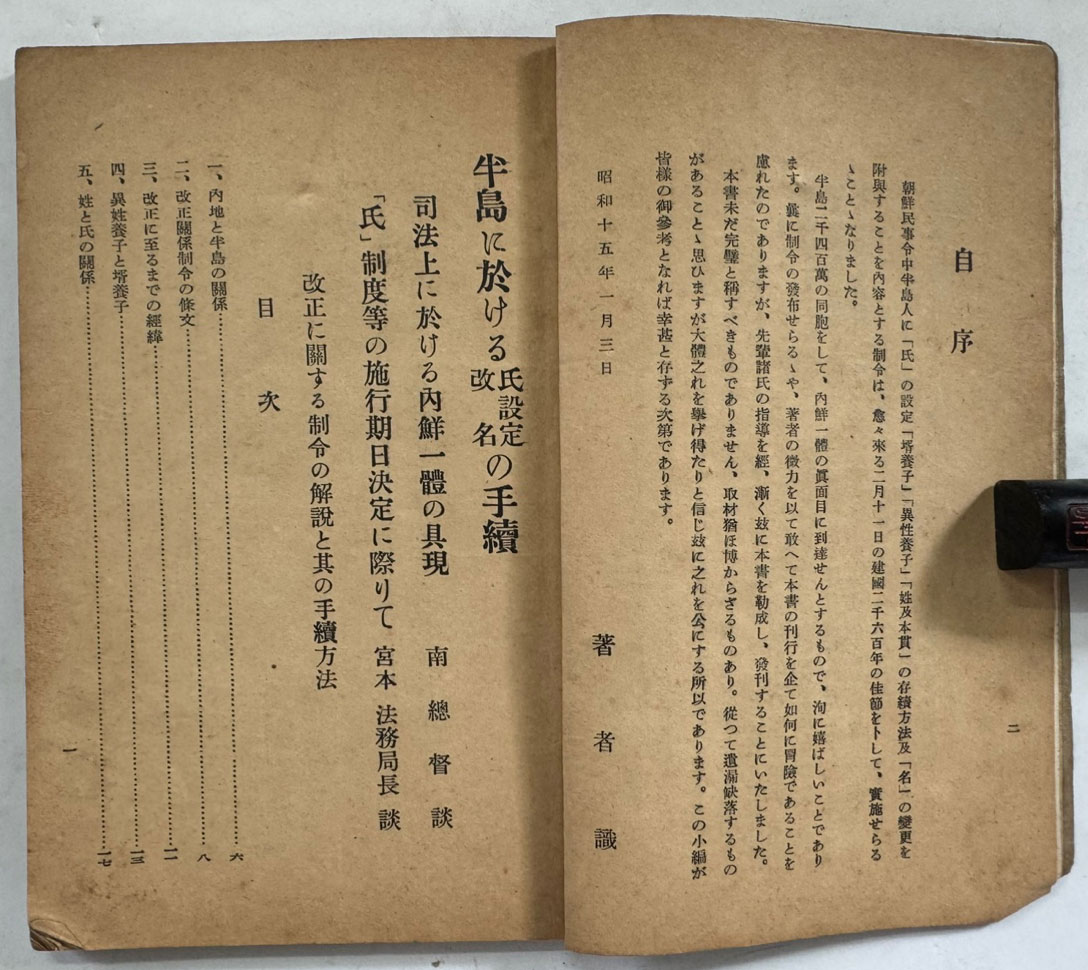 自序
朝鮮民事令中半島人に「氏」の設定「壻養子」「異性養子」「姓及本貫」の存續方法及「名」の變更を
附與することを內容とする制令は、愈々來る二月十一日の建國二千六百年の佳節を卜して、實施せらる
ゝことゝなりました。
半島二千四百萬の同胞をして、內鮮一體の眞面目に到達せんとするもので、洵に嬉ばしいことであり
ます。曩に制令の發布せらるゝや、著者の微力を以て敢へて本書の刊行を企て如何に冒險であることを
慮れたのでありますが、先輩諸氏の指導を經、漸く玆に本書を勒成し、發刊することにいたしました。
本書未だ完璧と稱すべきものでありません、取材猶ほ博からざるものあり。從つて遺漏缺落するもの
があることゝ思ひますが大體之れを擧げ得たりと信じ玆に之れを公にする所以であります。この小編が
皆樣の御參考となれば幸甚と存ずる次第であります。
昭和十五年一月三日
著者識
二
半島に於ける氏設定改名の手續
司法上に於ける內鮮一體の具現 南總督談
「氏」制度等の施行期日決定に際りて 宮本法務局長談
改正に關する制令の解說と其の手續方法
目次
一、內地と半島の關係……六
二、改正關係制令の條文……八
三、改正に至るまでの經緯……一一
四、異姓養子と壻養子……一三
五、姓と氏の關係……一七
一